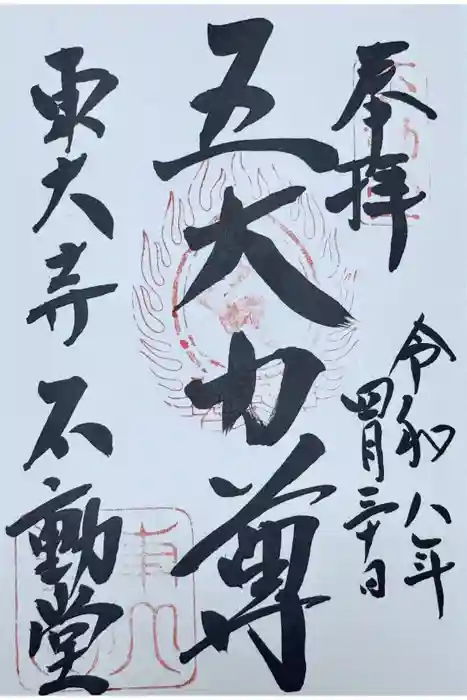 奉拝
令和八年
四月三十日
五大力尊
東大寺 不動堂